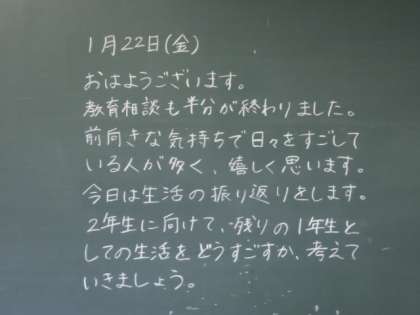 1月22日(金)
おはようございます。
教育相談も半分が終わりました。
前向きな気持ちで日々をすごして
いる人が多く、嬉しく思います。
今日は生活の振り返りをします。
2年生に向けて、残りの1年生と
しての生活をどうすごすか、考えて
いきましょう。